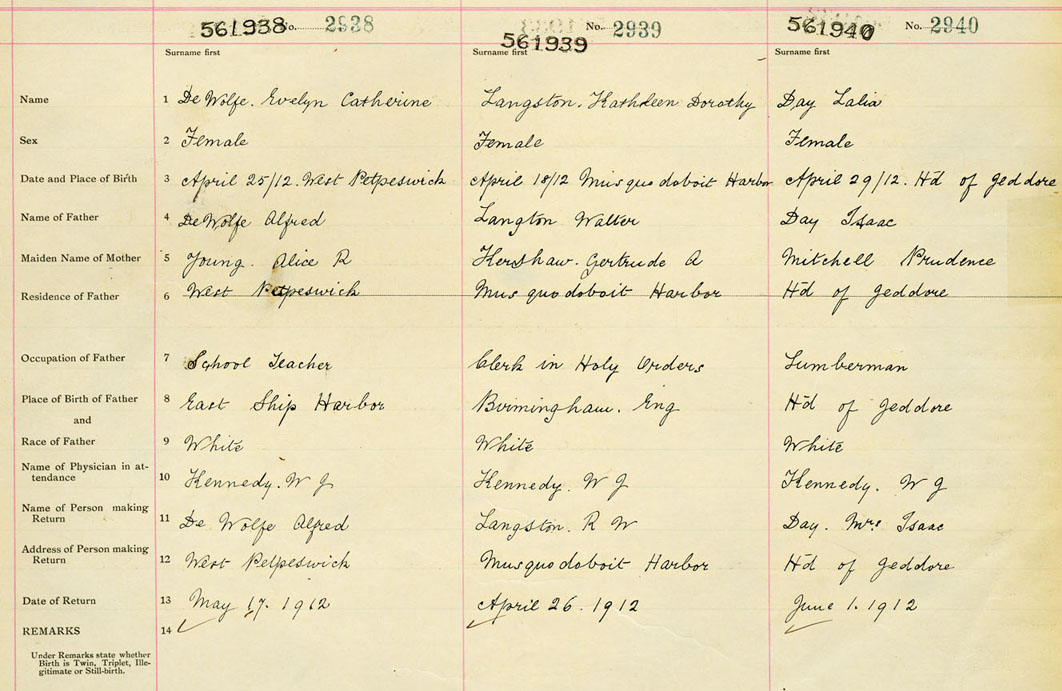 561938 No. 2938 561939 No. 2939 561940 No. 2940
Surname first Surname first Surname first
Name 1 De Wolfe. Evelyn Catherine Langston. Kathleen Dorothy Day Lalia
Sex 2 Female Female Female
Date and Place of Birth 3 April 25/12. West Petpeswick April 18/12 Musquodoboit Harbor April 29/12. H'd of Jeddore
Name of Father 4 De Wolfe Alfred Langton Walter Day Isaac
Maiden Name of Mother 5 Young. Alice R Kershaw. Gertrude A Mitchell Prudence
Residence of Father 6 West Petpeswick Musquodoboit Harbor H'd of Jeddore
Occupation of Father 7 School Teacher Clerk in Holy Orders Lumberman
Place of Birth of Father 8 East Ship Harbor Birmingham. Eng H'd of Jeddore
and
Race of Father 9 White White White
Name of Physician in at-
tendance 10 Kennedy. W J Kennedy. W J Kennedy. W J
Name of Person making
Return 11 De Wolfe Alfred Langston. R W Day. Mrs Isaac
Address of Person making
Return 12 West Petpeswick Musquodoboit Harbor H'd of Jeddore
Date of Return 13 May 17. 1912 April 26. 1912 June 1. 1912
REMARKS 14
Under Remarks state whether
Birth is Twin, Triplet, Ille-
gitimate or Still-birth.